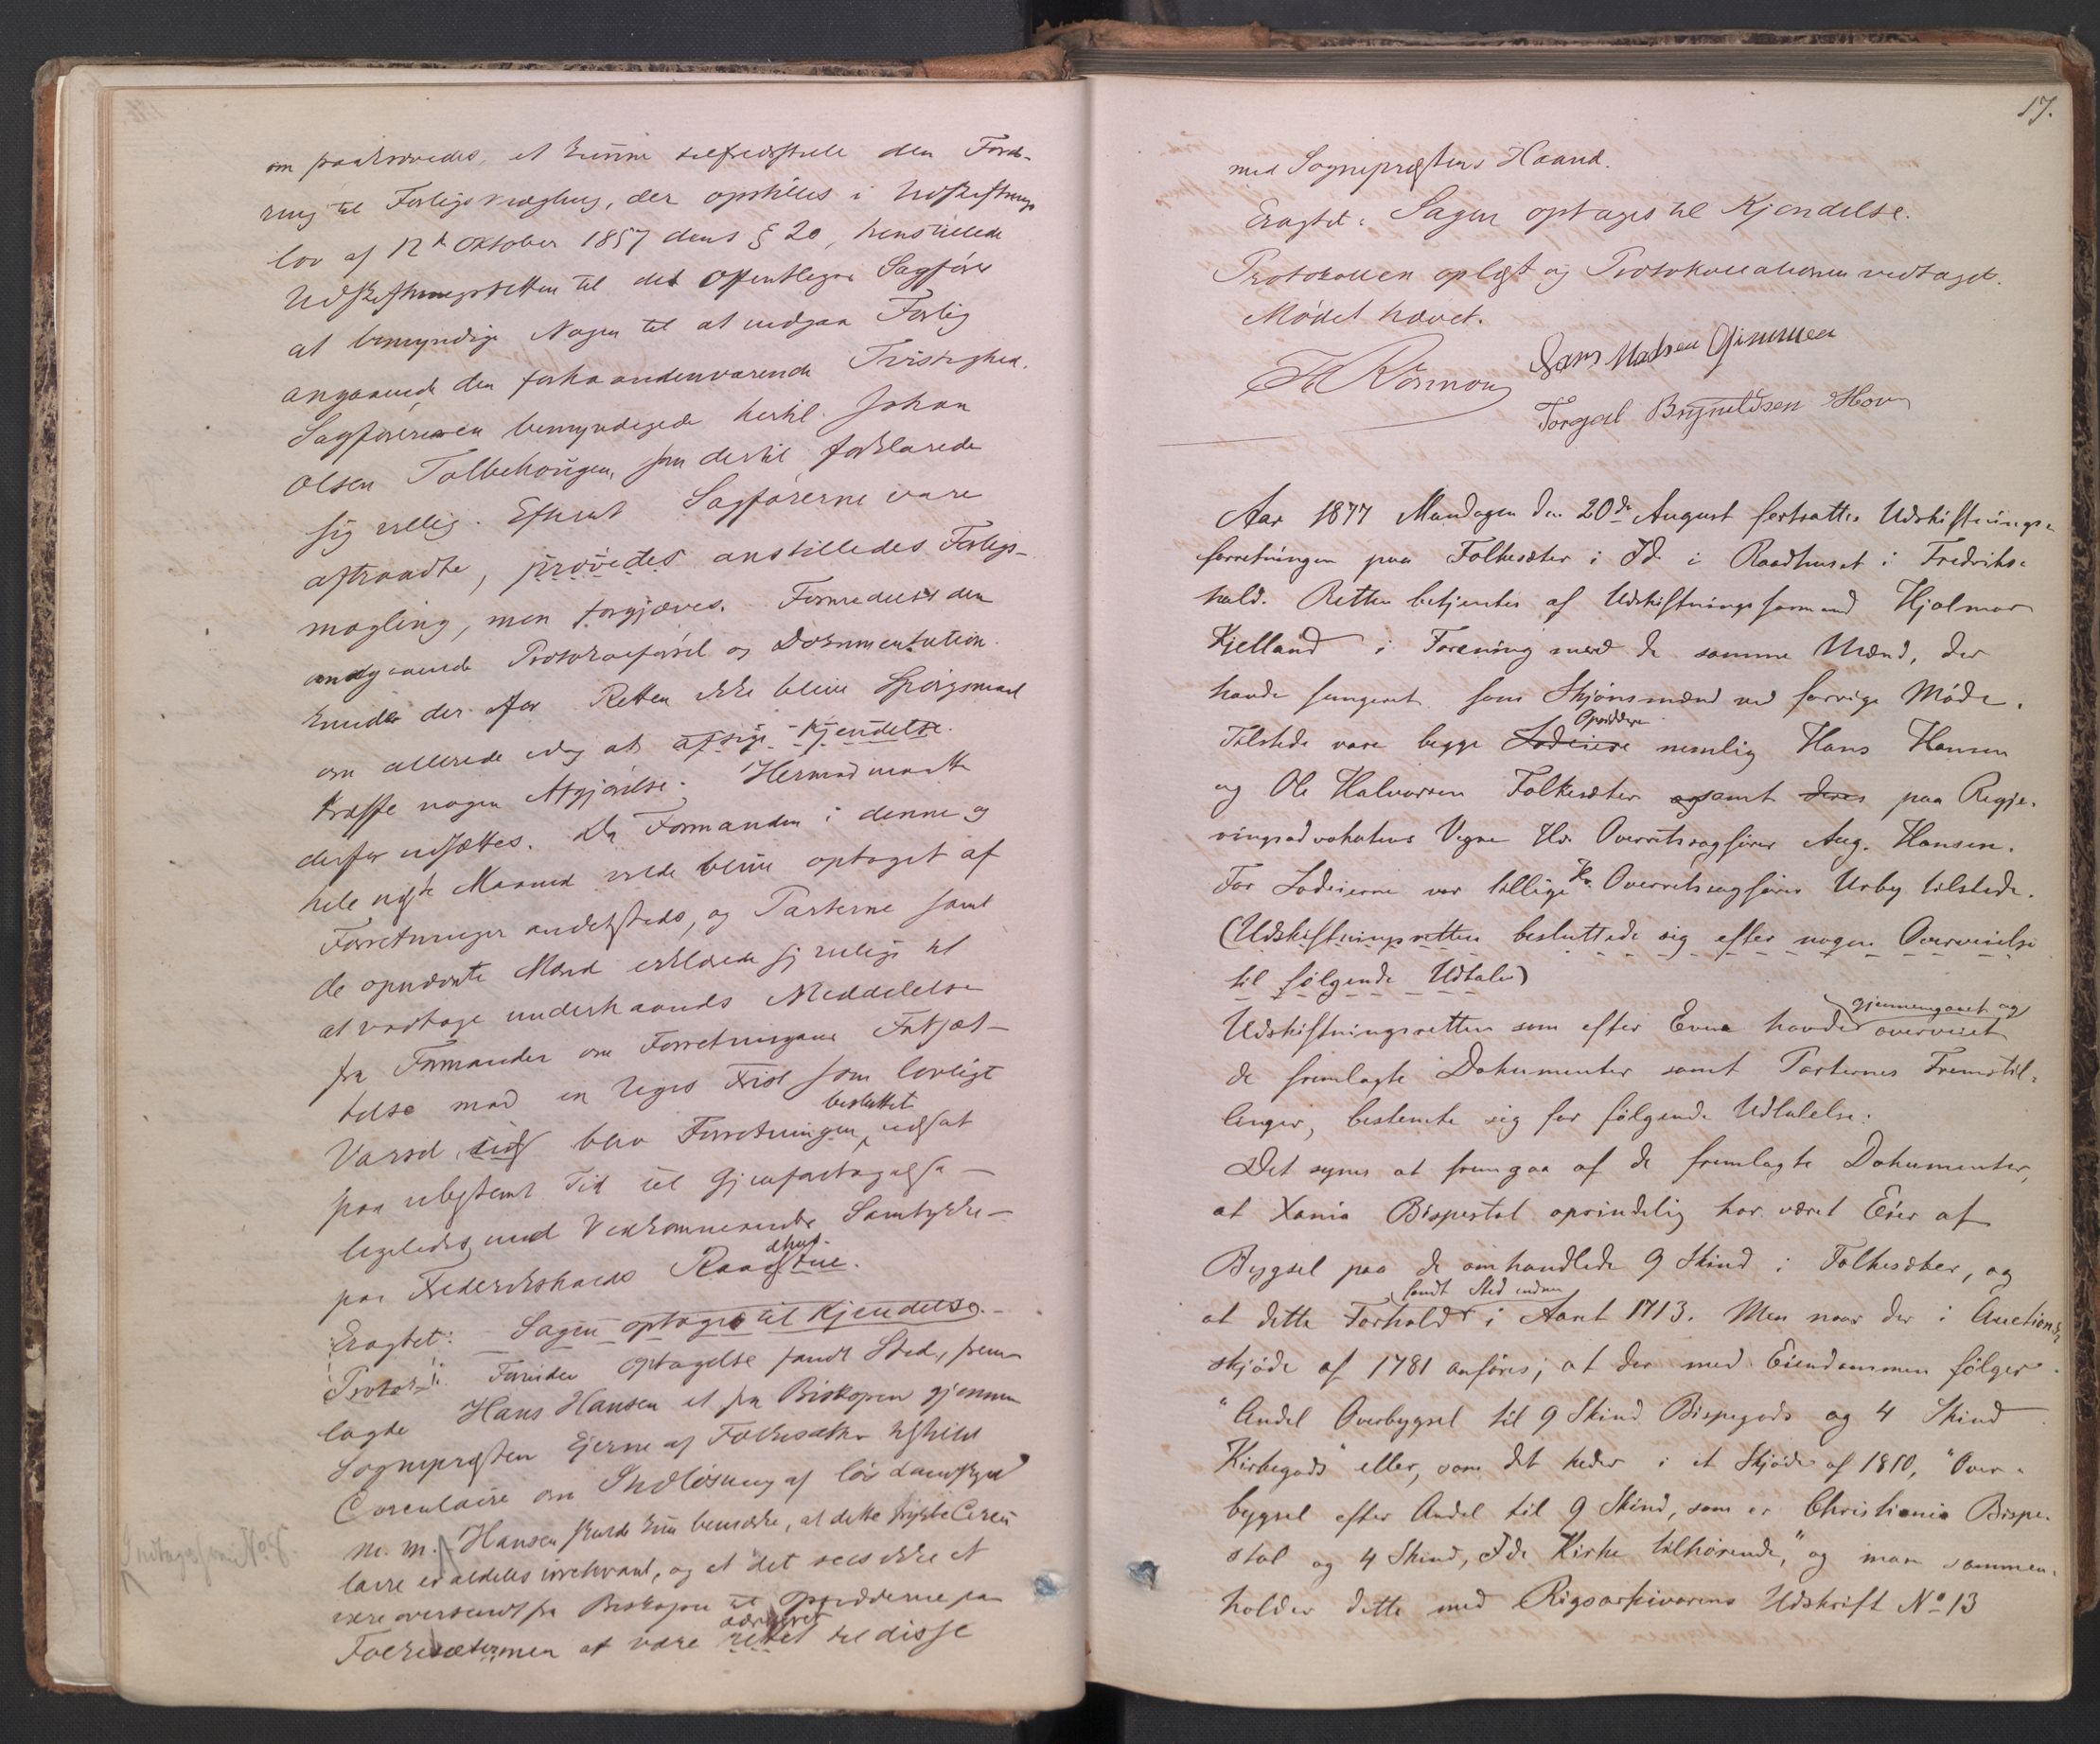 om paakrævedes, at kunne tilfredsstille den Ford-
ring til Forligsmægling, der opstilles i Udskiftnings
lov af 12te Oktober 1857 dens § 20, henstillede
Udskiftningsretten til det Offentliges Sagfører
at bemyndige Nogen til at indgaa Forlig
angaaende den forhaandenværende Tvistighed.
Sagføreren bemyndigede hertil Johan
Olsen Tolbehougen, som dertil forklarede
sig villig. Efterat Sagførerne vare
aftraadte, prøvedes anstilledes Forligs-
mægling, men forgjæves. Formedelst den
Protokolførsel og Dokumentation
kunde der for Retten ikke blive Spørgsmaal
om allerede idag at afsige Kjendelse
træffe nogen Afgjørelse. Hermed maatte
derfor udsættes. Da Formanden i denne og
hele næste Maaned vilde blive optaget af
Forretninger andetsteds, og Parterne samt
de opnævnte Mænd erklærede sig villige til
at modtage underhaands Meddelelse
fra Formanden om Forretningens Fortsæt-
telse med en Uges Frist som lovligt
Varsel, blev Forretningen besluttet udsat
paa ubestemt Tid til Gjenforetagelse
ligeledes med Vedkommendes Samtykke
paa Frederikshalds Raadhus. stue.
Eragtet: Sagen optages til Kjendelse.
Protok Forinden Optagelse fandt Sted, frem-
lagde Hans Hansen et fra Biskopen gjennem
Sognepræsten Ejerne af Folkesæter tilstillet
Circulaire om Indløsning af løs Landskyld
m. m. Hansen skulde kun bemærke, at dette trykte Circu
laire er aldeles irrelevant, og at det sees ikke at
være oversendt fra Biskopen til Opsidderne paa
Folkesæter men at være adresseret rettet til disse
Indtages som No 8.
17.
med Sognepræstens Haand.
Eragtet: Sagen optages til Kjendelse.
Protokollen oplæst og Protokollationen vedtaget.
Mødet hævet.
Hans Madsen Gimmen
Torgal Brynildsen Hov
Aar 1877 Mandagen den 20de August fortsattes Udskiftnings-
forretningen paa Folkesæter i Id i Raadhuset i Fredriks-
hald. Retten betjentes af Udskiftningsformand Hjalmar
Kjelland i Forening med de samme Mænd, der
havde fungeret som Skjønsmænd ved forrige Møde.
Tilstede vare begge Lodeiere Opsiddere nemlig Hans Hansen
og Ole Halvorsen Folkesæter og samt deres paa Regje-
ringsadvokatens Vegne Hr. Overretssagfører Aug. Hansen.
For Lodeierne var tillige Hr. Overretssagfører Urby tilstede.
(Udskiftningsretten besluttede sig efter nogen Overveielse
til følgende Udtalen)
Udskiftningsretten som efter Evne havde gjennemgaaet og overveiet
de fremlagte Dokumenter samt Parternes Fremstil-
linger, bestemte sig for følgende Udtalelse:
Det synes at fremgaa af de fremlagte Dokumenter,
at Xania Bispestol oprindelig har været Eier af
Bygsel paa de omhandlede 9 Skind i Folkesæter, og
at dette Forhold fandt Sted endnu i Aaret 1713. Men naar der i Auctions-
skjøde af 1781 anføres, at der med Eiendommen følger
"Andel Overbygsel til 9 Skind Bispegods og 4 Skind
Kirkegods" eller, som det heder i et Skjøde af 1810, "Over-
bygsel efter Andel til 9 Skind, som er Christiania Bispe-
stol og 4 Skind, Ide Kirke tilhørende," og man sammen-
holder dette med Rigsarkivarens Udskrift No 13